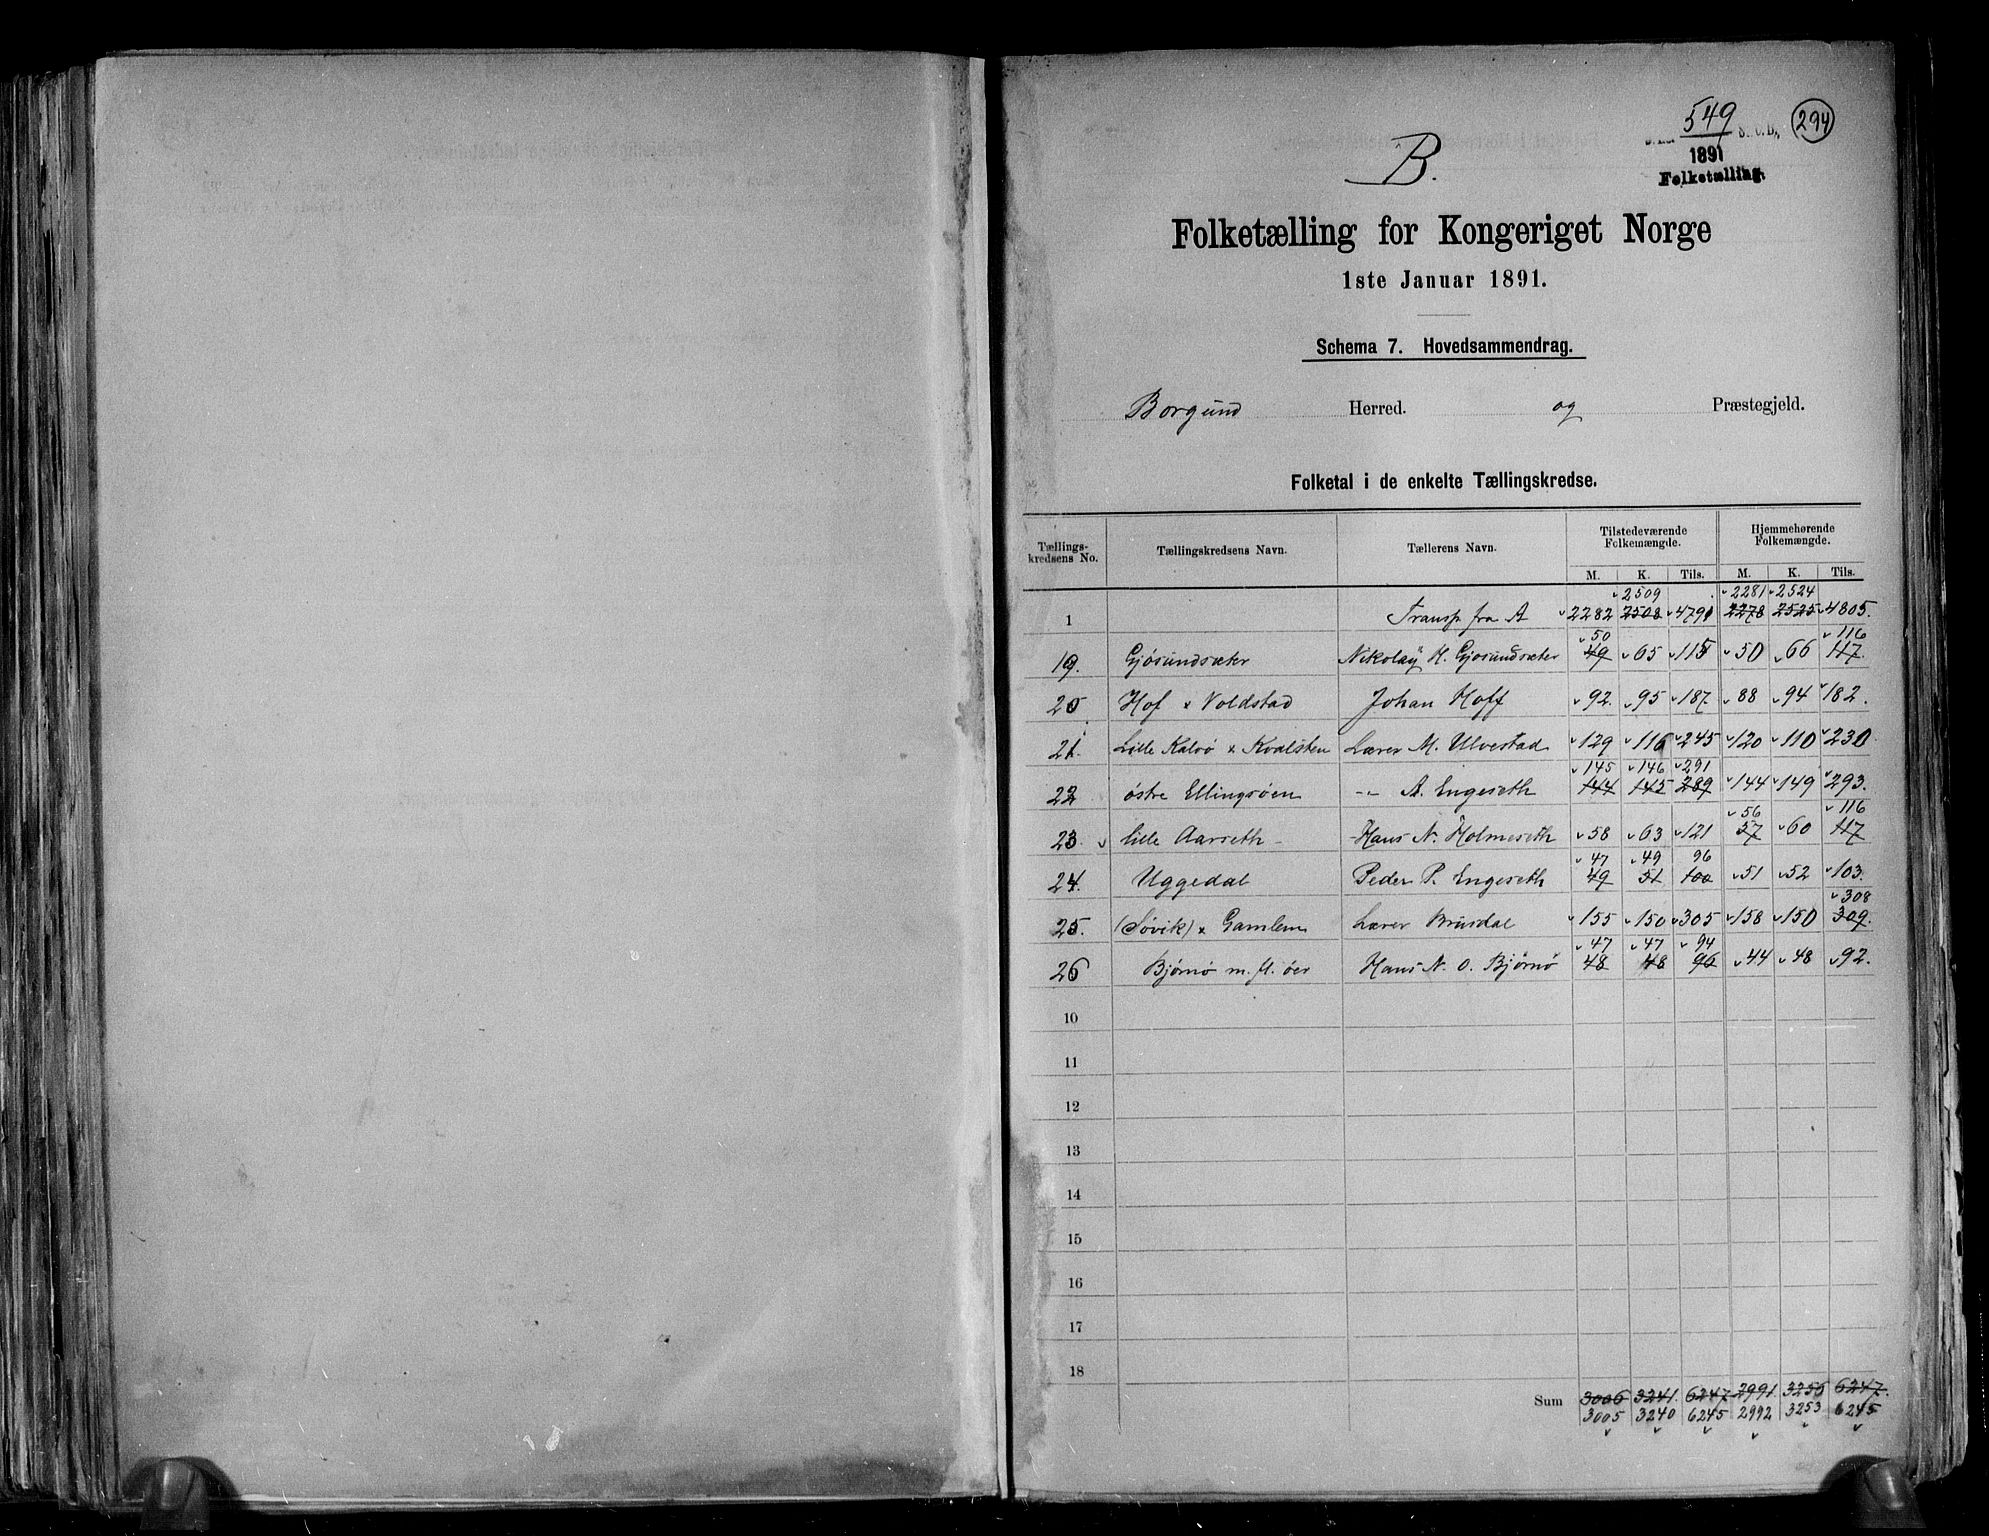 549
S. C. B.
294
1891
Folketælling.
B.
Folketælling for Kongeriget Norge
1ste Januar 1891.
Schema 7. Hovedsammendrag.
Borgund Herred. og Præstegjeld.
Folketal i de enkelte Tællingskredse.
Tællings-kredsens No. Tællingskredsens Navn. Tællerens Navn. Tilstedeværende Folkemængde. Hjemmehørende Folkemængde.
M. K. Tils. M. K. Tils.
2509 2281 2524
1 Transp. fra A 2282 2508 4791 2278 2525 4805.
50 116
19. Gjøsundsæter Nikolay H. Gjøsundsæter 49 65 115 50 66 117.
20 Hof x Voldstad Johan Hoff 92. 95 187. 88 94 182.
21. Lille Kalvø x Kvalsten Lærer M. Ulvestad 129 116 245 120 110 230
145 146 291
22 østre Ellingsøen -"- A. Engeseth 144 145 289 144 149 293.
56 116
23. lille Aarseth - Hans N. Holmeseth 58 63 121 57 60 117
47 49 96
24. Uggedal Peder P. Engeseth 49 51 100 51 52 103.
308
25. (Søvik) x Gamlem Lærer Brusdal 155 150 305 158 150 309.
47 47 94
26 Bjørnø m. fl. øer Hans N. O. Bjørnø 48 48 96 44 48 92.
10
11
12
13
14
15
16
17
18
Sum 3006 3241. 6247 2991. 3256 6247.
3005 3240 6245 2992 3253 6245